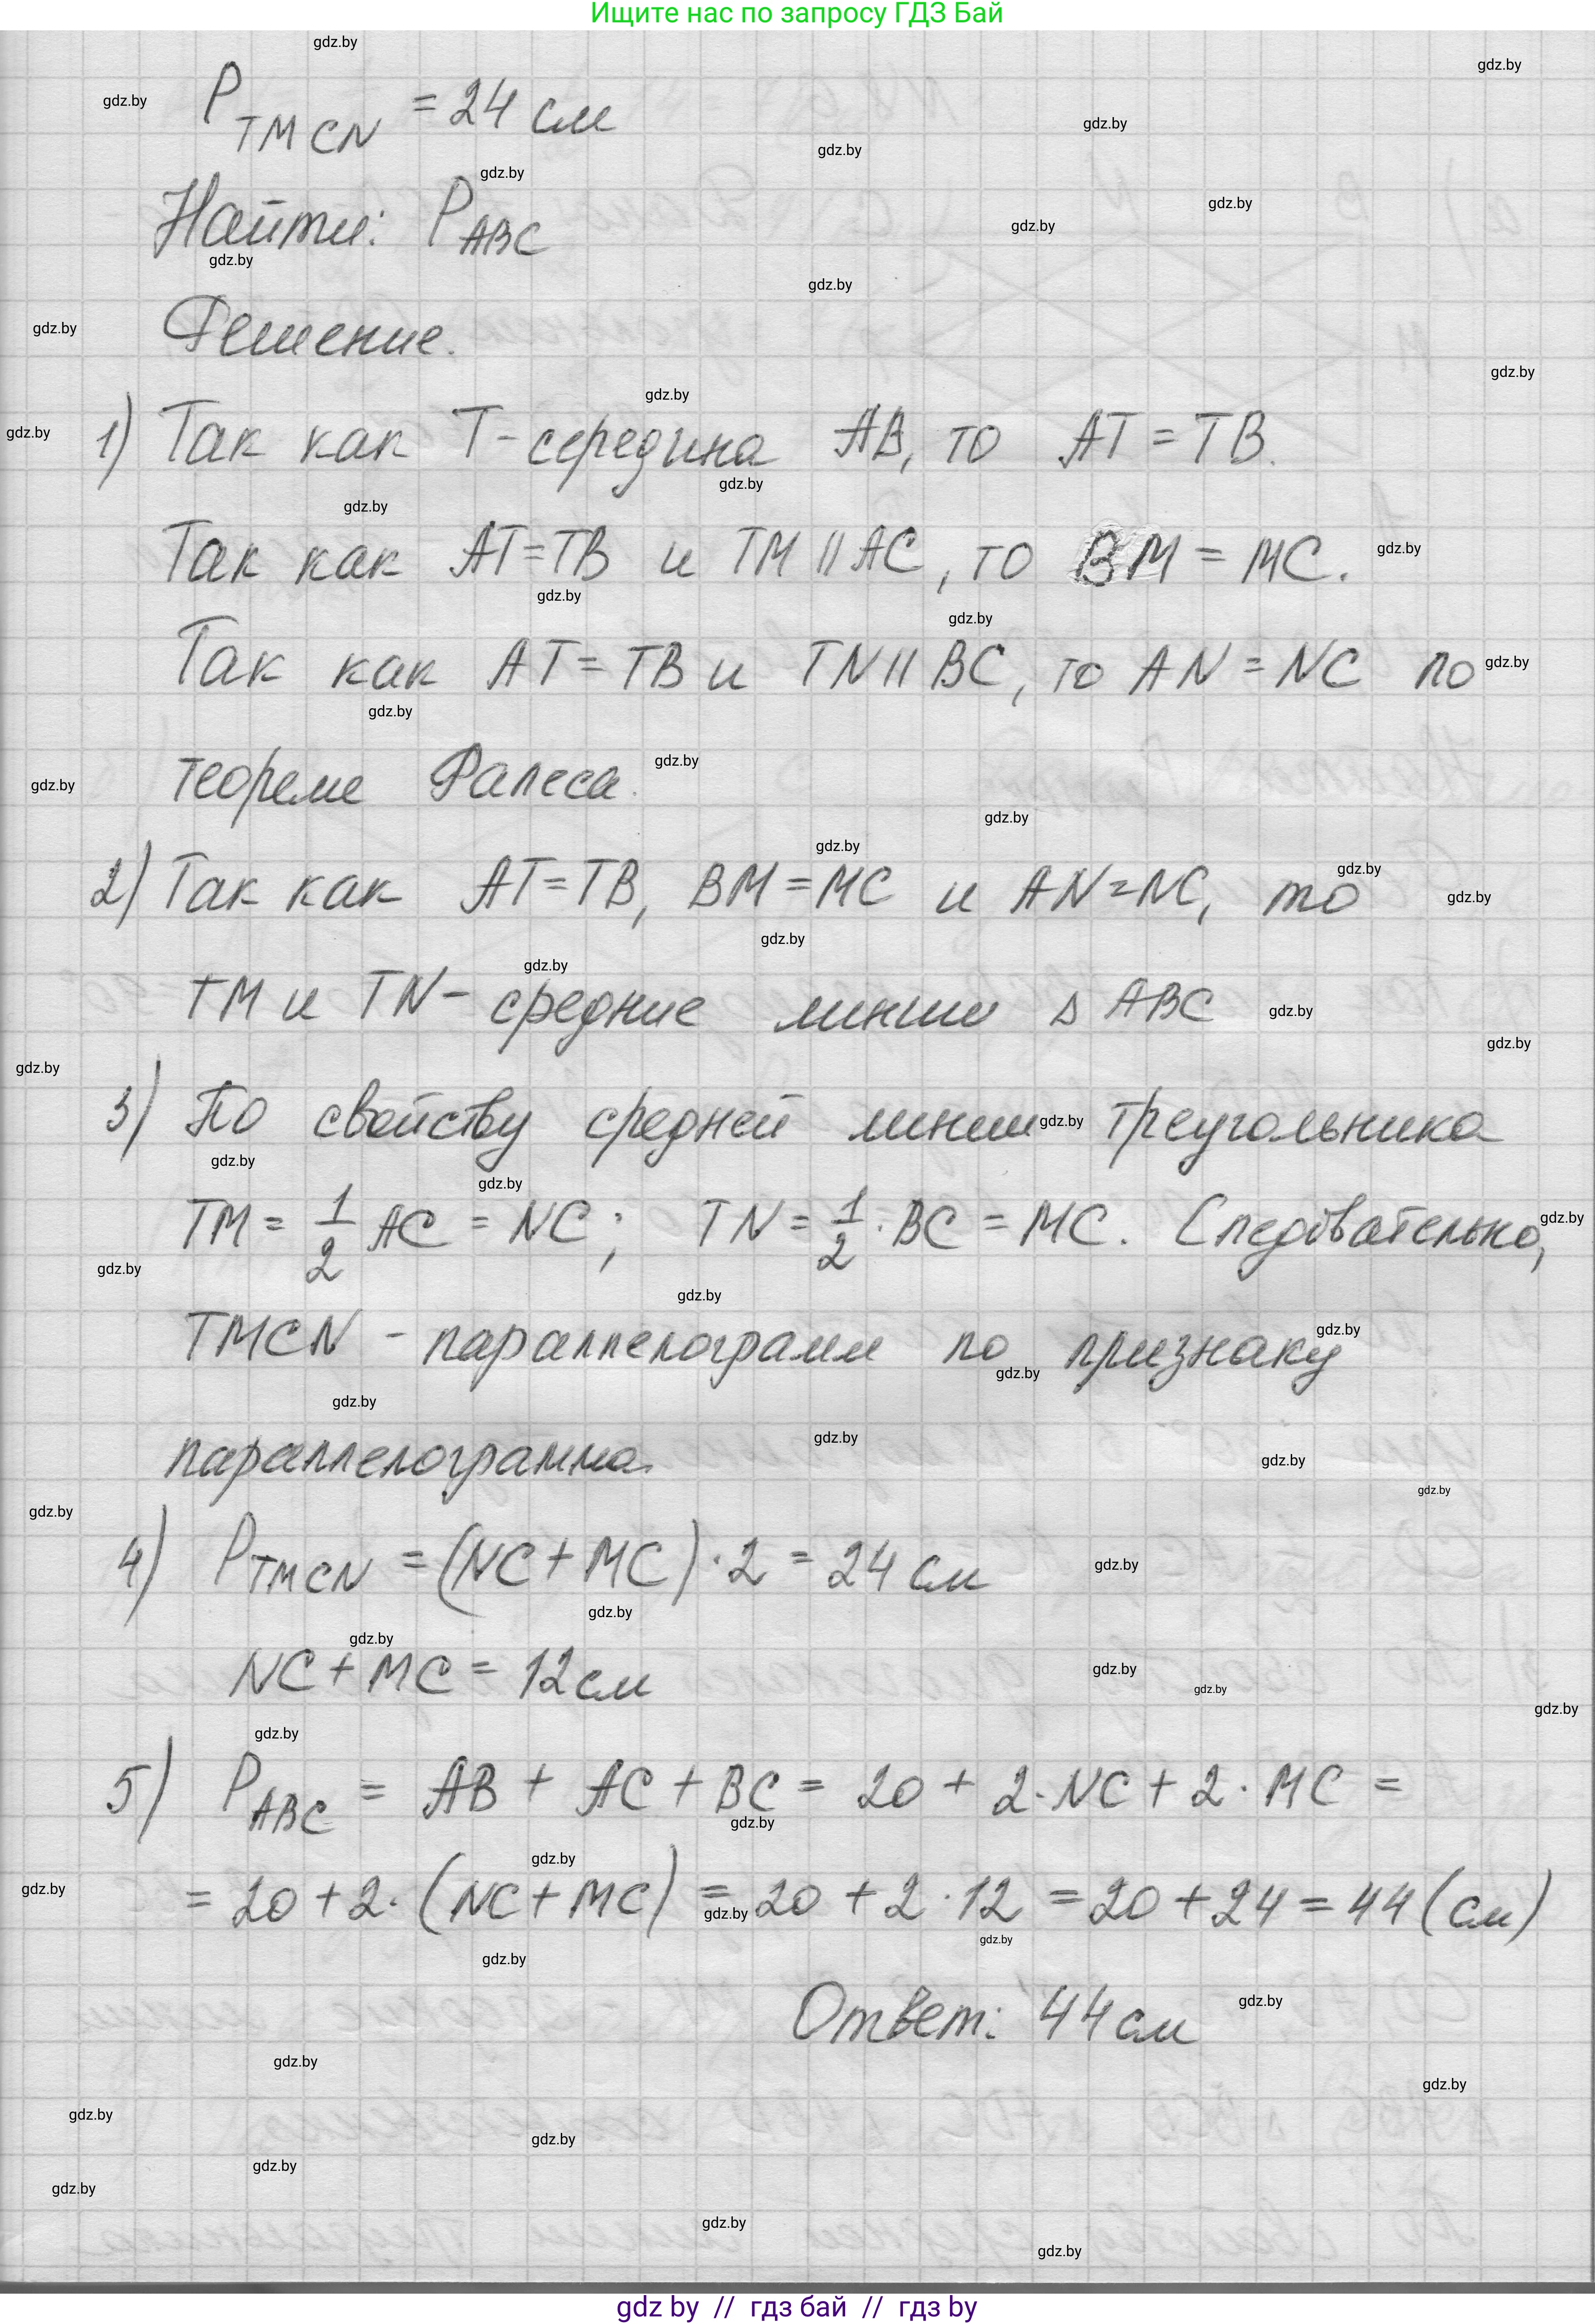 Ищите нас по запросу ГДЗ Бай
P TMCN = 24 см
Найти: P ABC
Решение.
1) Так как T - середина AB, то AT = TB.
Так как AT = TB и TM || AC, то BM = MC.
Так как AT = TB и TN || BC, то AN = NC по
теореме Фалеса.
2) Так как AT = TB, BM = MC и AN = NC, то
TM и TN - средние линии Δ ABC
3) По свойству средней линии треугольника
TM = 1/2 AC = NC; TN = 1/2 · BC = MC. Следовательно,
TMCN - параллелограмм по признаку
параллелограмма.
4) P TMCN = (NC + MC) · 2 = 24 см
NC + MC = 12 см
5) P ABC = AB + AC + BC = 20 + 2 · NC + 2 · MC =
= 20 + 2 · (NC + MC) = 20 + 2 · 12 = 20 + 24 = 44 (см)
Ответ: 44 см
gdz by // гдз бай // гдз by